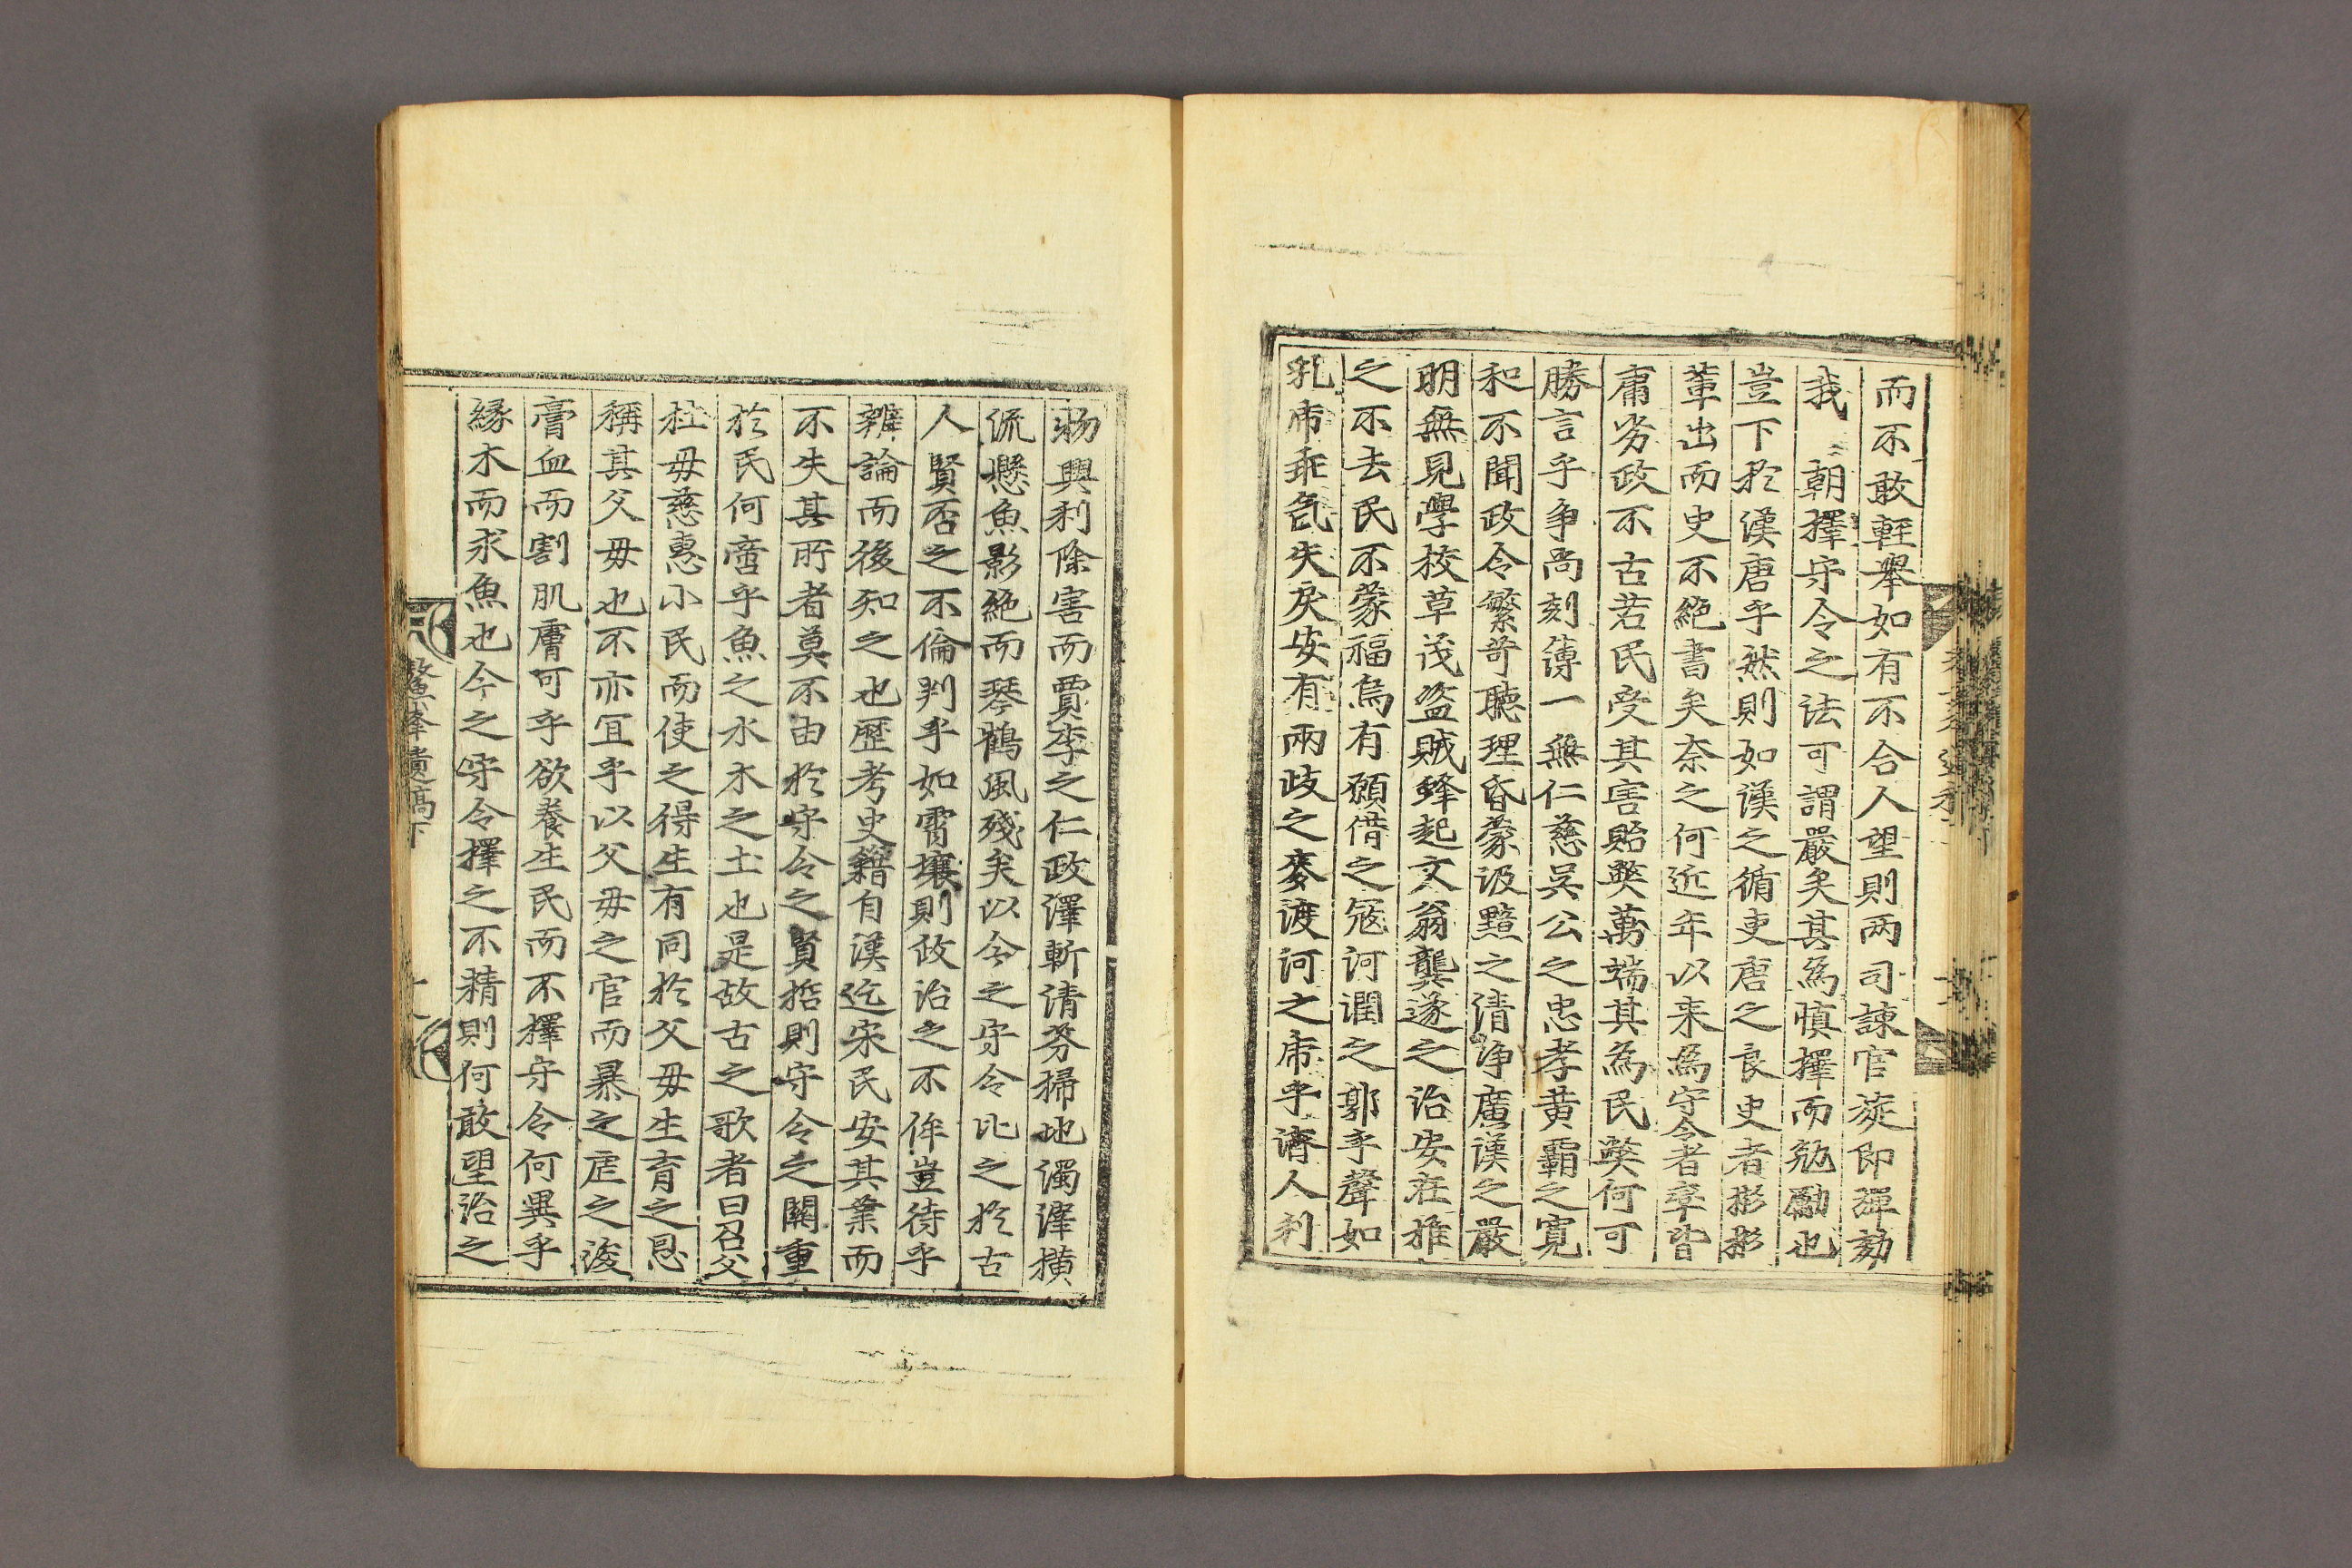 而不敢輕擧如有不合人望則两司諫官旋即彈劾
我朝擇守令之法可謂嚴矣其爲愼擇而勉勵也
豈下於漢唐乎然則如漢之循吏唐之良吏者彬彬
輩出而史不絶書矣奈之何近年以来爲守令者率皆
庸劣政不古若民受其害貽弊萬端其爲民弊何可
勝言乎爭尚刻薄一無仁慈吳公之忠孝黃霸之寬
和不聞政令繁苛聽理昏蒙汲黯之清净廣漢之嚴
明無見學校草茂盗賊蜂起文翁龔遂之治安在推
之不去民不蒙福烏有願借之冦河潤之郭乎聲如
乳虎乖氣失戾安有兩歧之麥渡河之虎乎濟人利
物興利除害而賈李之仁政澤斬清芬掃地濁滓橫
流懸魚影絶而琴鶴風殘矣以今之守令比之於古
人賢否之不倫判乎如霄壤則政治之不侔豈待乎
辨論而後知之也歷考史籍自漢迄宋民安其業而
不失其所者莫不由於守令之賢哲則守令之關重
於民何啻乎魚之水木之土也是故古之歌者曰召父
杜毋慈惠小民而使之得生有同於父毋生育之恩
稱其父毋也不亦冝乎以父毋之官而暴之虐之浚
膏血而割肌膚可乎欲養生民而不擇守令何異乎
緣木而求魚也今之守令擇之不精則何敢望治之
鰲峰遺稿下